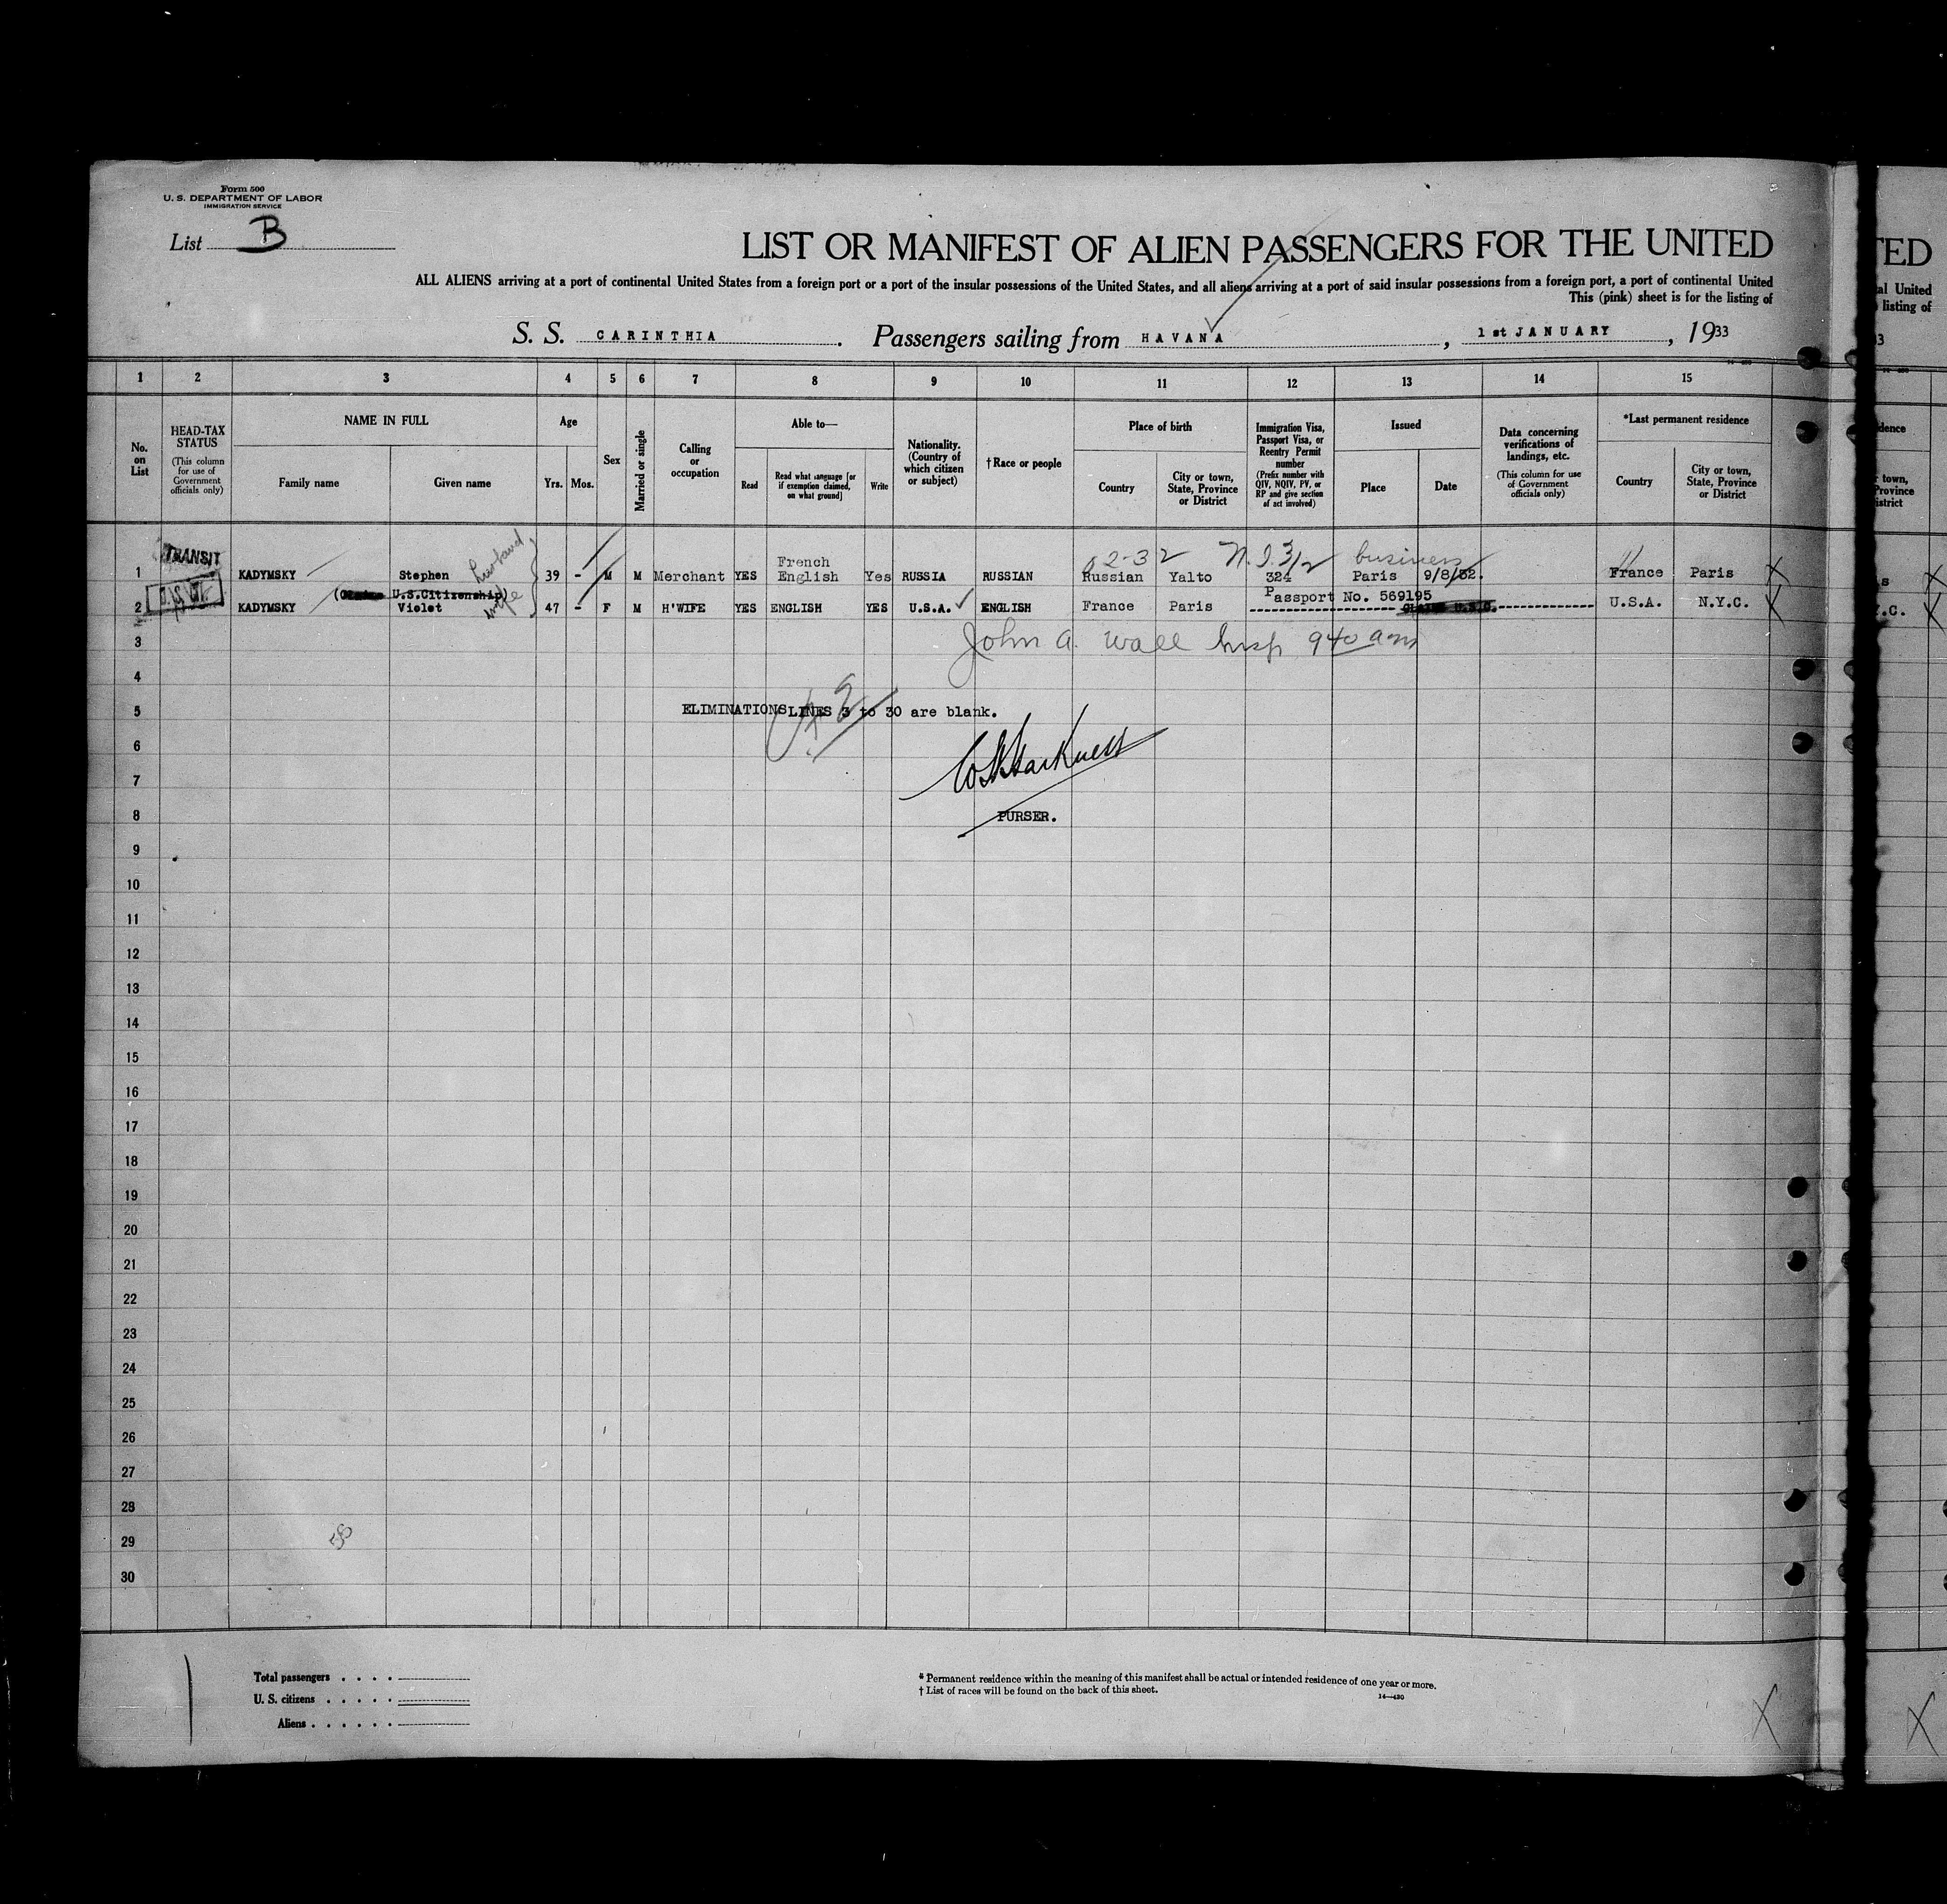 Form 500
U. S. DEPARTMENT OF LABOR
IMMIGRATION SERVICE
List B
LIST OR MANIFEST OF ALIEN PASSENGERS FOR THE UNITED
ALL ALIENS arriving at a port of continental United States from a foreign port or a port of the insular possessions of the United States, and all aliens arriving at a port of said insular possessions from a foreign port, a port of continental United
This (pink) sheet is for the listing of
S. S. CARINTHIA. Passengers sailing from HAVANA, 1st JANUARY, 1933
1 2 3 4 5 6 7 8 9 10 11 12 13 14 15
No. on List
HEAD-TAX STATUS (This column for use of Government officials only)
NAME IN FULL
Family name
Given name
Age
Yrs. Mos.
Sex
Married or single
Calling or occupation
Able to—
Read
Read what language [or if exemption claimed, on what ground]
Write
Nationality. (Country of which citizen or subject)
†Race or people
Place of birth
Country
City or town, State, Province or District
Immigration Visa, Passport Visa, or Reentry Permit number (Prefix number with QIV, NQIV, PV, or RP and give section of act involved)
Issued
Place
Date
Data concerning verifications of landings, etc. (This column for use of Government officials only)
*Last permanent residence
Country
City or town, State, Province or District
TRANSIT husband French 2-32 business
1 KADYMSKY Stephen 39 - M M Merchant YES English Yes RUSSIA RUSSIAN Russian Yalto 324 Paris 9/8/32. France Paris
U.S.Citizenship) wife Passport No. 569195
2 KADYMSKY Violet 47 - F M H'WIFE YES ENGLISH YES U.S.A. ENGLISH France Paris U.S.A. N.Y.C.
3 John A. Wall Insp 940 am
4
5 ELIMINATIONS LINES 3 to 30 are blank.
6
7
8 PURSER.
9
10
11
12
13
14
15
16
17
18
19
20
21
22
23
24
25
26
27
28
29
30
Total passengers
U. S. citizens
Aliens
* Permanent residence within the meaning of this manifest shall be actual or intended residence of one year or more.
† List of races will be found on the back of this sheet.
14—430